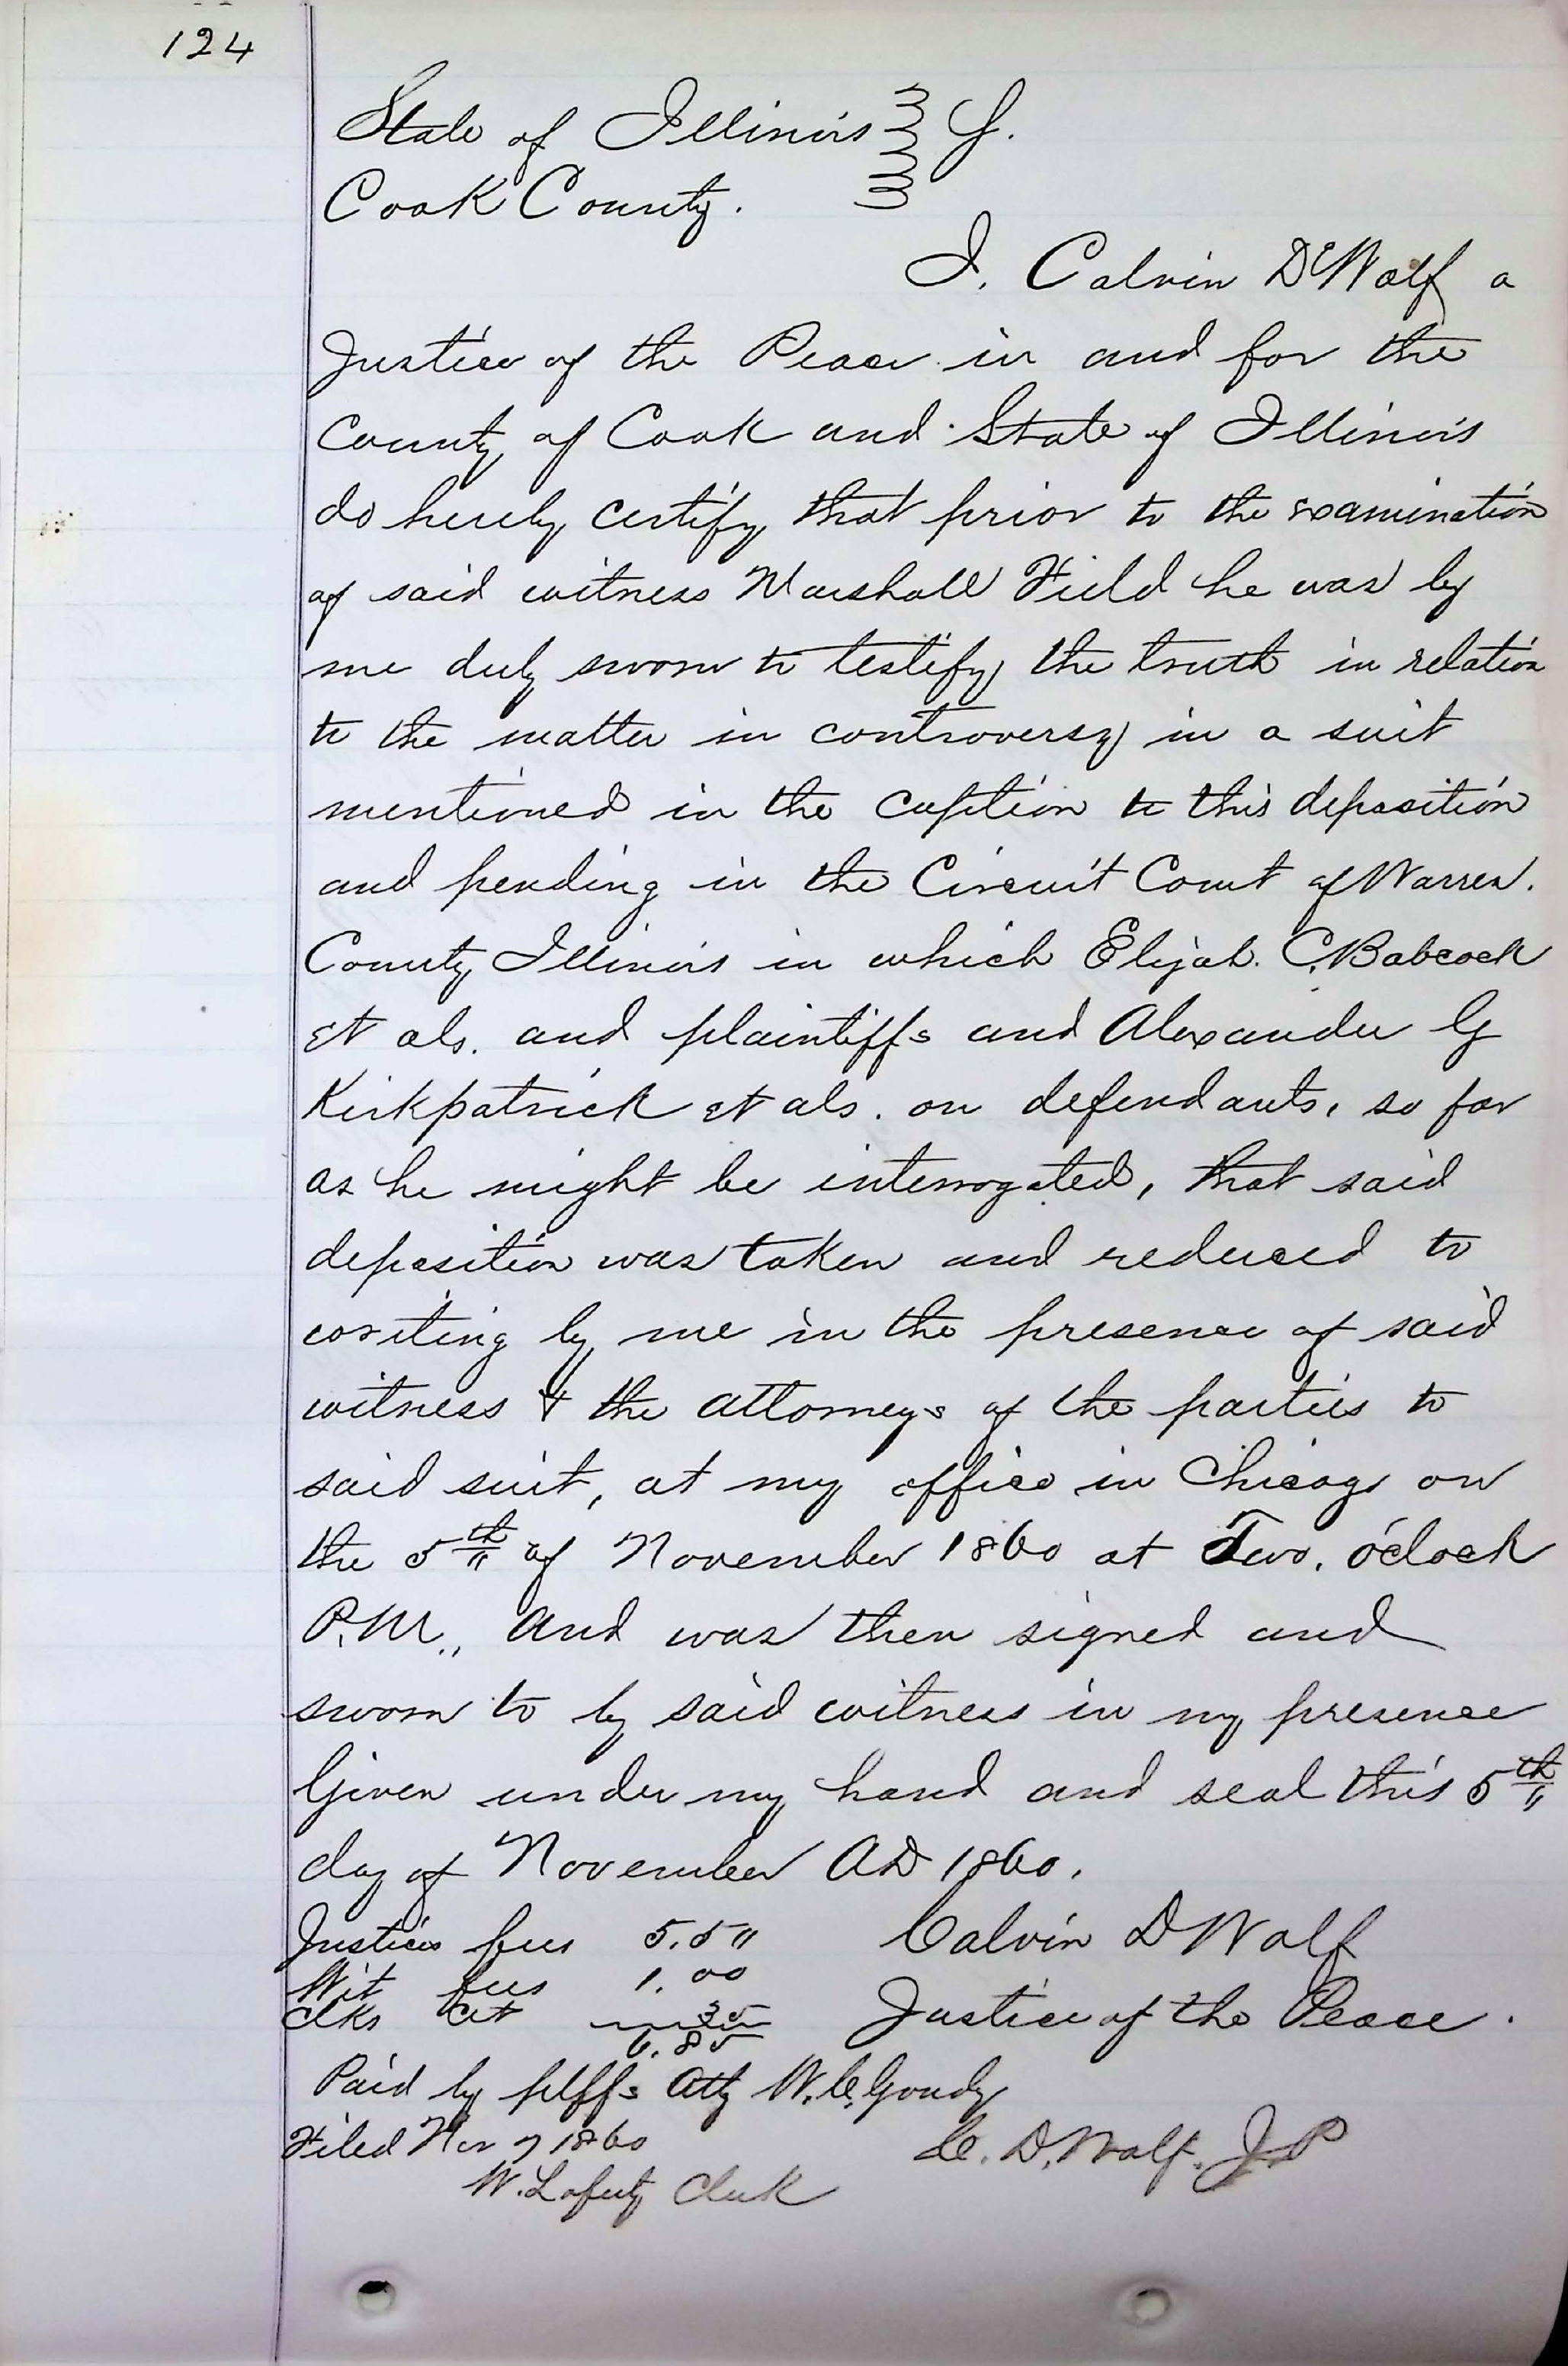 124
State of Illinois } S.
Cook County. }
I. Calvin DeWolf a
Justice of the Peace in and for the
County of Cook and State of Illinois
do hereby certify that prior to the examination
of said witness Marshall Field he was by
me duly sworn to testify the truth in relation
to the matter in controversy in a suit
mentioned in the caption to this deposition
and pending in the Circuit Court of Warren.
County Illinois in which Elijah. C. Babcock
et als. and plaintiffs and Alexander G
Kirkpatrick et als. on defendants, so far
as he might be interrogated, that said
deposition was taken and reduced to
writing by me in the presence of said
witness & the attorneys of the parties to
said suit, at my office in Chicago on
the 5th of November 1860 at Two. o'clock
P.M., and was then signed and
sworn to by said witness in my presence
Given under my hand and seal this 5th
day of November AD 1860.
Justices fees 5.50 Calvin D Wolf
Wit fees 1.00
Clks Cet 35 Justice of the Peace.
6.85
Paid by plffs Atty W. C. Goudy
Filed Nov 7 1860 C. D. Wolf. J P
W. Laferty Clerk